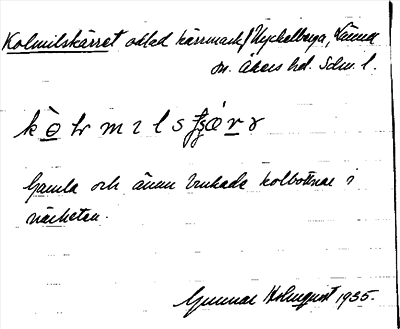 Kolmilskärret odlad kärrmark, Nyckelberga, Länna
sn. Åkers hd. Sdm. l.
Gamla och ännu brukade kolbottnar i
närheten.
Gunnar Holmquist 1935.